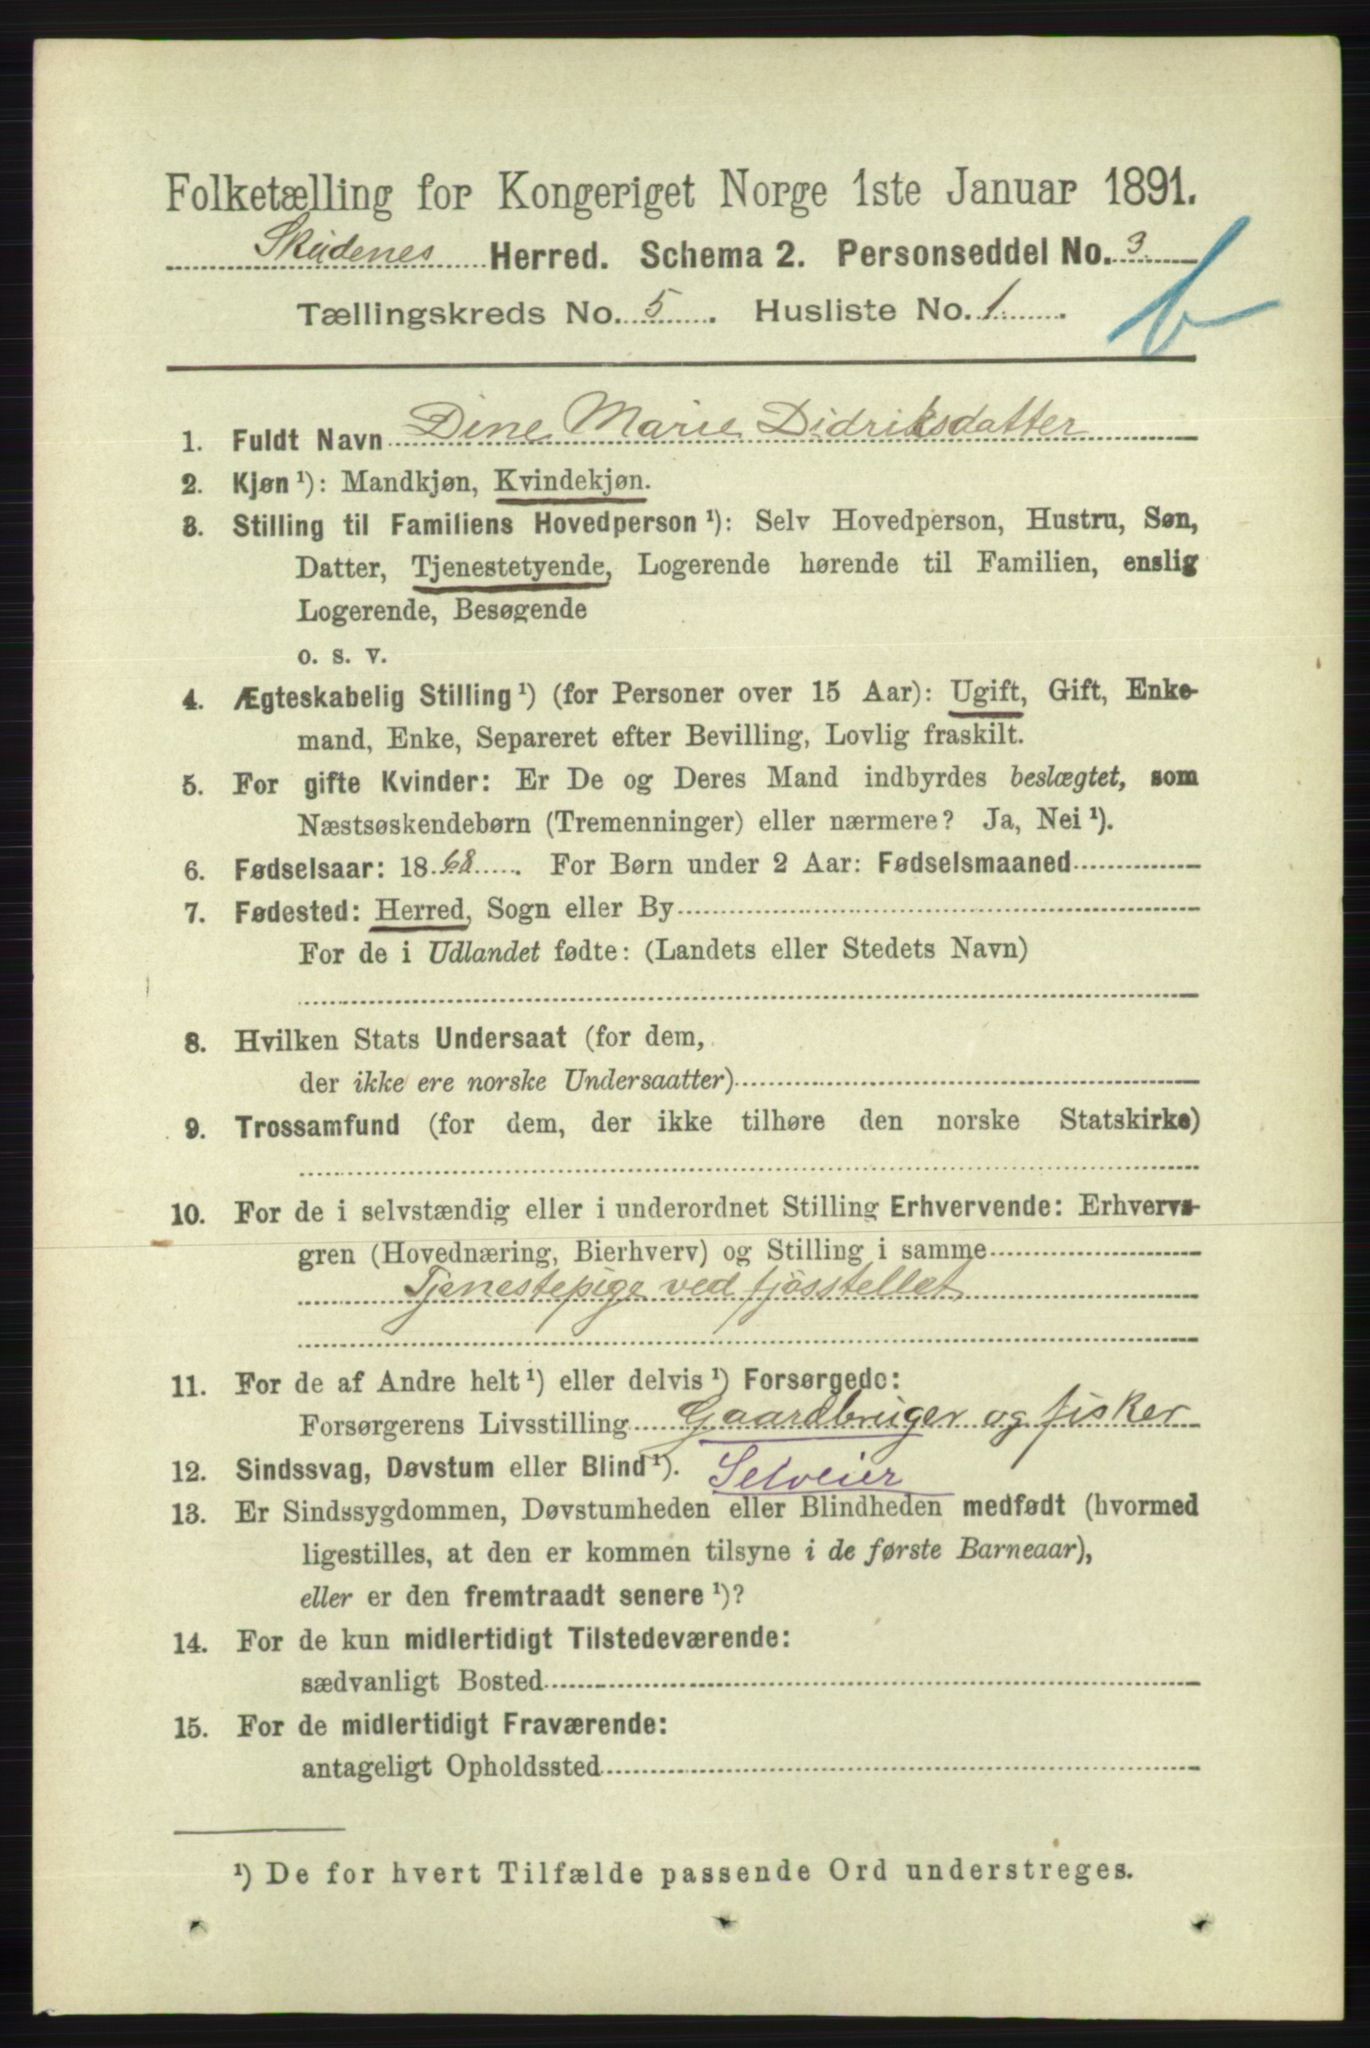 Folketælling for Kongeriget Norge 1ste Januar 1891.
Skudenes Herred. Schema 2. Personseddel No. 3.
Tællingskreds No. 5. Husliste No. 1.
b
1. Fuldt Navn Dine Marie Didriksdatter
2. Kjøn ¹): Mandkjøn, Kvindekjøn.
3. Stilling til Familiens Hovedperson ¹): Selv Hovedperson, Hustru, Søn,
Datter, Tjenestetyende, Logerende hørende til Familien, enslig
Logerende, Besøgende
o. s. v.
4. Ægteskabelig Stilling ¹) (for Personer over 15 Aar): Ugift, Gift, Enke-
mand, Enke, Separeret efter Bevilling, Lovlig fraskilt.
5. For gifte Kvinder: Er De og Deres Mand indbyrdes beslægtet, som
Næstsøskendebørn (Tremenninger) eller nærmere? Ja, Nei ¹).
6. Fødselsaar: 1868. For Børn under 2 Aar: Fødselsmaaned
7. Fødested: Herred, Sogn eller By
For de i Udlandet fødte: (Landets eller Stedets Navn)
8. Hvilken Stats Undersaat (for dem,
der ikke ere norske Undersaatter)
9. Trossamfund (for dem, der ikke tilhøre den norske Statskirke)
10. For de i selvstændig eller i underordnet Stilling Erhvervende: Erhvervs-
gren (Hovednæring, Bierhverv) og Stilling i samme
Tjenestepige ved fjøsstellet
11. For de af Andre helt ¹) eller delvis ¹) Forsørgede:
Forsørgerens Livsstilling Gaardbruger og fisker
12. Sindssvag, Døvstum eller Blind ¹). Selveier
13. Er Sindssygdommen, Døvstumheden eller Blindheden medfødt (hvormed
ligestilles, at den er kommen tilsyne i de første Barneaar),
eller er den fremtraadt senere ¹)?
14. For de kun midlertidigt Tilstedeværende:
sædvanligt Bosted
15. For de midlertidigt Fraværende:
antageligt Opholdssted
¹) De for hvert Tilfælde passende Ord understreges.